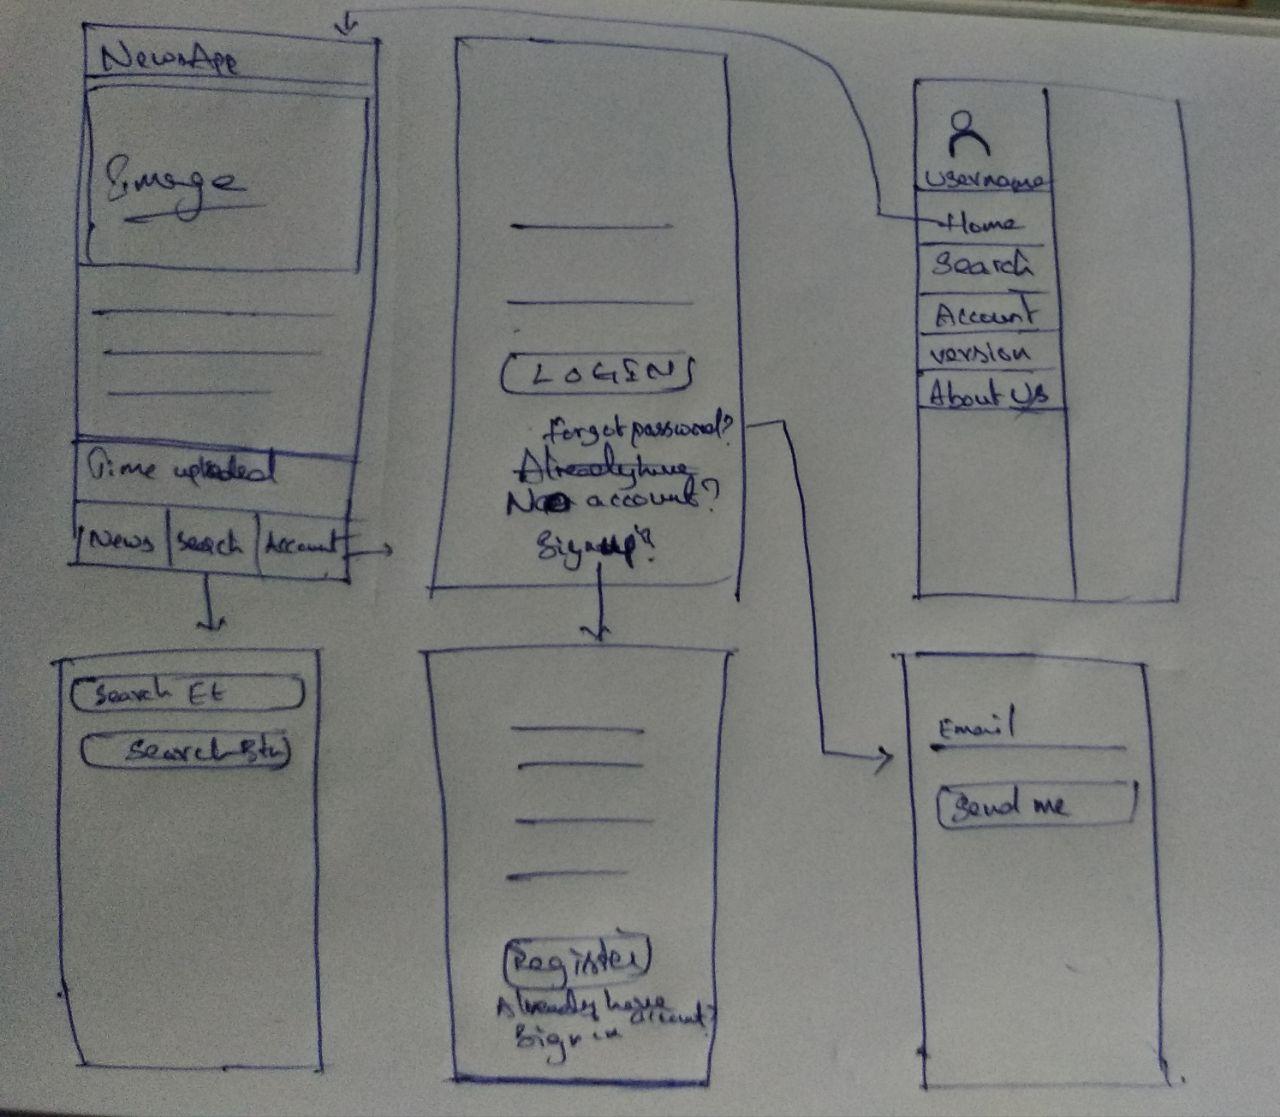 NewsApp
Image
Time uploaded
News
Search
Account
LOGIN
Forgot password?
Already have
No account?
Signup?
Username
Home
Search
Account
version
About Us
Search Et
Search Btn
Register
Already have
account?
Sign in
Email
Send me